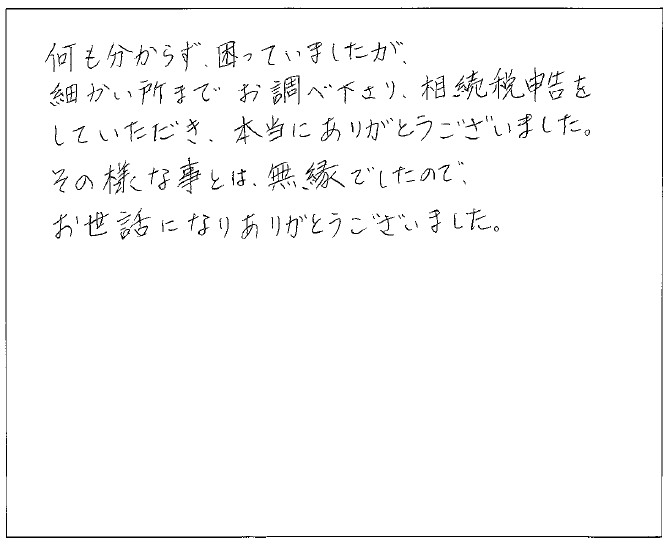 何も分からず、困っていましたが、
細かい所まで お調べ下さり、相続税申告を
していただき、本当にありがとうございました。
その様な事とは、無縁でしたので、
お世話になりありがとうございました。